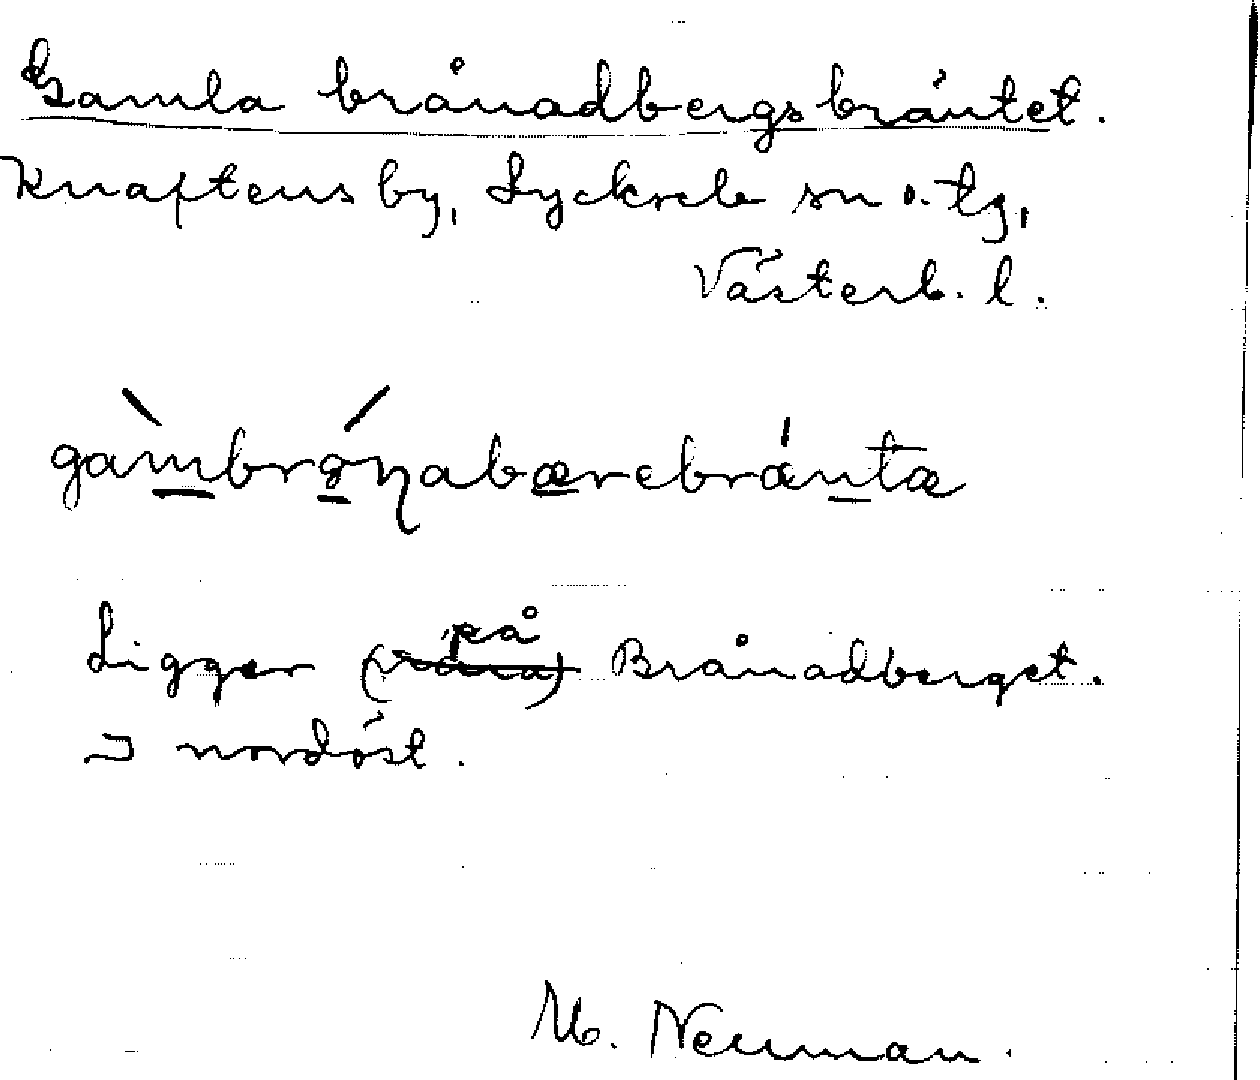 Gamla brånadbergsbräntet.
Knaftens by, Lycksele sn o. tg,
Västerb. l.
gàmbrǿnabærebræ´ntæ
på
Ligger (nära) Brånadberget.
I nordöst.
M. Neuman.